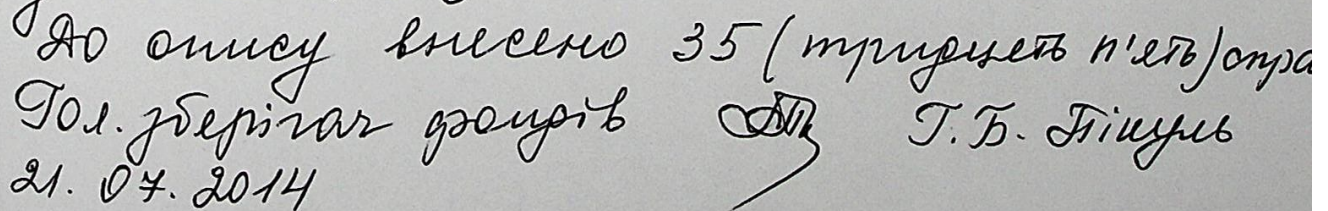 До опису внесено 35 (тридцять п'ять) спра
Гол. зберігач фондів Г.Б. Пікуль
21.07.2014